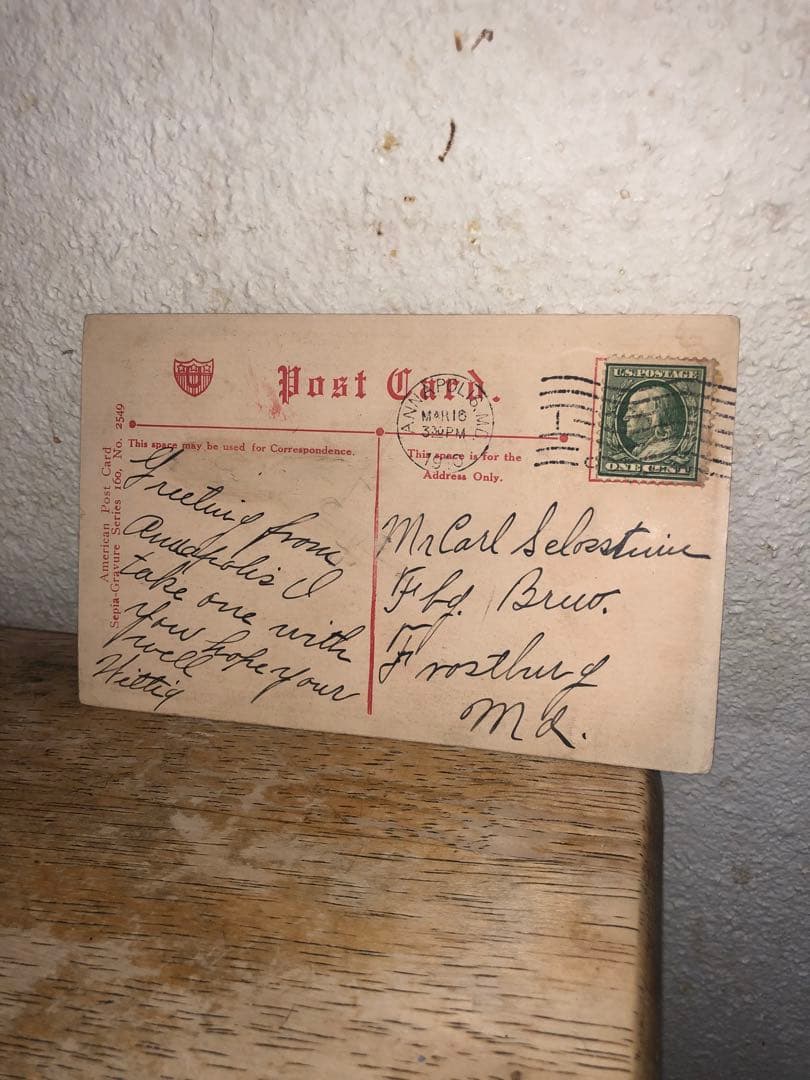 Post Card.
This space may be used for Correspondence.
This space is for the
Address Only.
American Post Card
Sepia-Gravure Series 160, No. 2549
ANNAPOLIS, MD.
MAR 16
3 30 PM
U.S. POSTAGE
ONE CENT
Greeting from
Annapolis I
take one with
you hope your
well
Wittig
Mr Carl
Fbg. Brew.
Frostburg
Md.